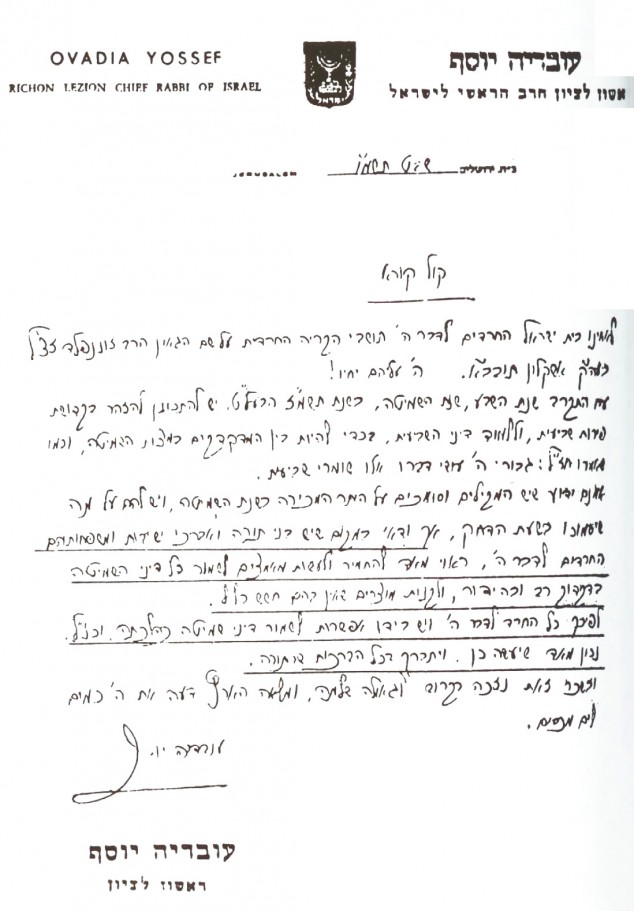 OVADIA YOSSEF
RICHON LEZION CHIEF RABBI OF ISRAEL
עובדיה יוסף
אשון לציון הרב הראשי לישראל
ישראל
JERUSALEM שבט תשמ"ו ירושלים
קול קורא
לאחינו בית ישראל החרדים לדבר ה' תושבי הקריה החרדית על שם הגאון הרב זוננפלד זצ"ל
בעה"ק אשקלון תובב"א. ה' עליהם יחיו!
עם התקרב שנת השבע, שנת השמיטה, בשנת תשמ"ז הבעל"ט. יש להתכונן להזהר בקדושת
פרות שביעית, וללמוד דיני השביעית, בכדי להיות בין המדקדקים במצות השמיטה, וכמו
שאמרו חז"ל: גבורי כח עושי דברו אלו שומרי שביעית.
אמנם ידוע שיש המקילים וסומכים על התר המכירה בשנת השמיטה, ויש להם על מה
שיסמכו בשעת הדחק, אך ודאי במקום שיש בני תורה ואברכי ישיבות ומשפחותיהם
החרדים לדבר ה', ראוי מאד להחמיר ולעשות מאמצים לשמור כל דיני השמיטה
בדקדוק רב ובהידור, ולקנות מוצרים שאין בהם חשש כלל.
לפיכך כל החרד לדבר ה' ויש בידו אפשרות לשמור דיני שמיטה כהלכתה. וכנ"ל
נכון מאד שיעשה כן. ויתברך בכל הברכות שבתורה.
ובשכר זאת נזכה בקרוב לגאולה שלמה, ומלאה הארץ דעה את ה' כמים
לים מכסים.
עובדיה יו.
עובדיה יוסף
ראשון לציון